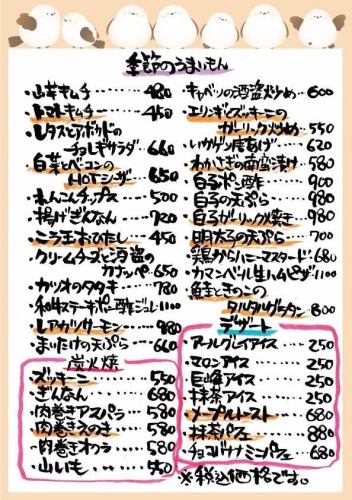 季節のうまいもん
・山芋キムチ……480
・トマトキムチ……450
・レタスとアボカドの
チョレギサラダ……660
・白菜とベーコンの
HOTシーザー 650
・れんこんチップス……500
・揚げぎんなん……720
・ニラ玉おひたし……450
・クリームチーズと酒盗の
カナッペ…650
・カツオのタタキ……780
・和牛ステーキポン酢ジュレ…1100
・レアカツサーモン……980
・まいたけの天ぷら……660
炭火焼
・ズッキーニ……550
・ぎんなん……680
・肉巻きアスパラ……580
・肉巻きえのき……580
・肉巻きオクラ……580
・山いも……550
・キャベツの酒盗炒め…600
・エリンギとズッキーニの
ガーリック炒め…550
・いかゲソ唐あげ……620
・わかさぎの南蛮漬け…580
・白子ポン酢……900
・白子の天ぷら……980
・白子ガーリック焼き…980
・明太子の天ぷら……700
・鶏からハニーマスタード…680
・カマンベール生ハムピザ…1100
・鮭ときのこの
タルタルグラタン…800
デザート
・アールグレイアイス……250
・マロンアイス……250
・巨峰アイス……250
・抹茶アイス……250
・メープルトースト……680
・抹茶パフェ……880
・チョコバナナミニパフェ…680
※税込価格です。